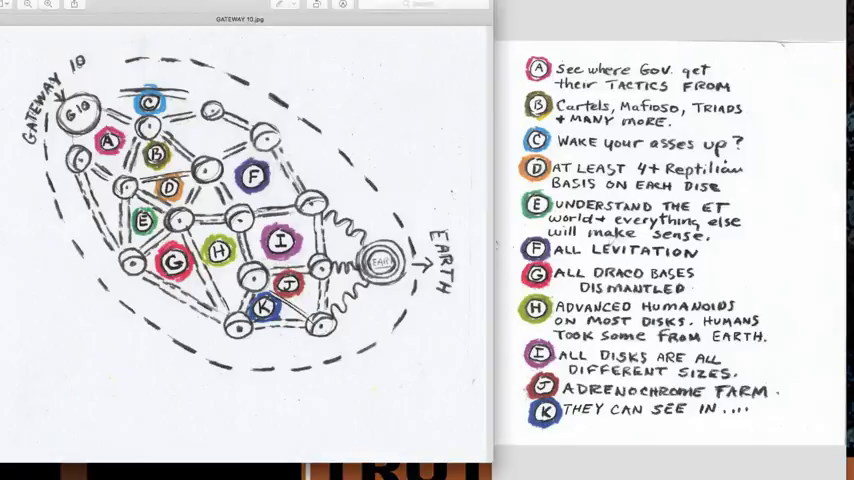 GATEWAY 10.jpg
Search
GATEWAY 10
G10
A
B
C
D
E
F
G
H
I
J
K
EAR
EARTH
A See where Gov. get
their TACTICS FROM
B Cartels, Mafioso, TRIADS
+ MANY MORE.
C WAKE your asses up?
D AT LEAST 4+ Reptilian
BASIS ON EACH DISC
E UNDERSTAND THE ET
world + everything else
will make sense.
F ALL LEVITATION
G ALL DRACO BASES
DISMANTLED
H ADVANCED HUMANOIDS
ON MOST DISKS. HUMANS
TOOK some FROM EARTH.
I ALL DISKS ARE ALL
DIFFERENT SIZES.
J ADRENOCHROME FARM.
K THEY CAN SEE IN....
TRUT